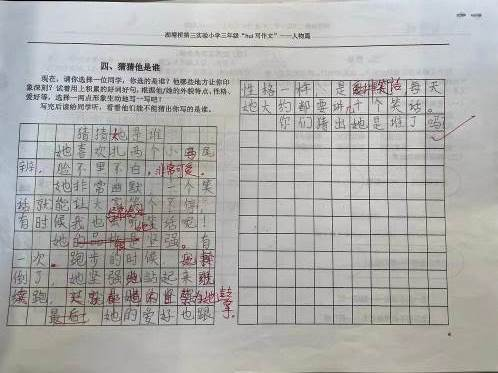 湘麓桥第三实验小学三年级“hui写作文”——人物篇
四、猜猜他是谁
现在，请你选择一位同学，你选的是谁？他哪些地方让你印
象深刻？试着用上积累的好词好句，根据他/她的外貌特点、性格、
爱好等，选择一两点形象生动地写一写吧！
写完后读给同学听，看看他们能不能猜出你写的是谁。
猜猜她是谁
她喜欢扎两个小马尾
辫，脸不黑不白，非常可爱。
她非常幽默，一个笑
话就能让大家笑个不停，
有时候我也会听她笑话呢！
她的是坚强。有
一次，跑步的时候，她摔
倒了，她坚强地站起来继
续跑，为她鼓掌。
最后，她的爱好也跟
性格一样，是每天
她大约都要讲十个笑话。
你们猜出她是谁了吗